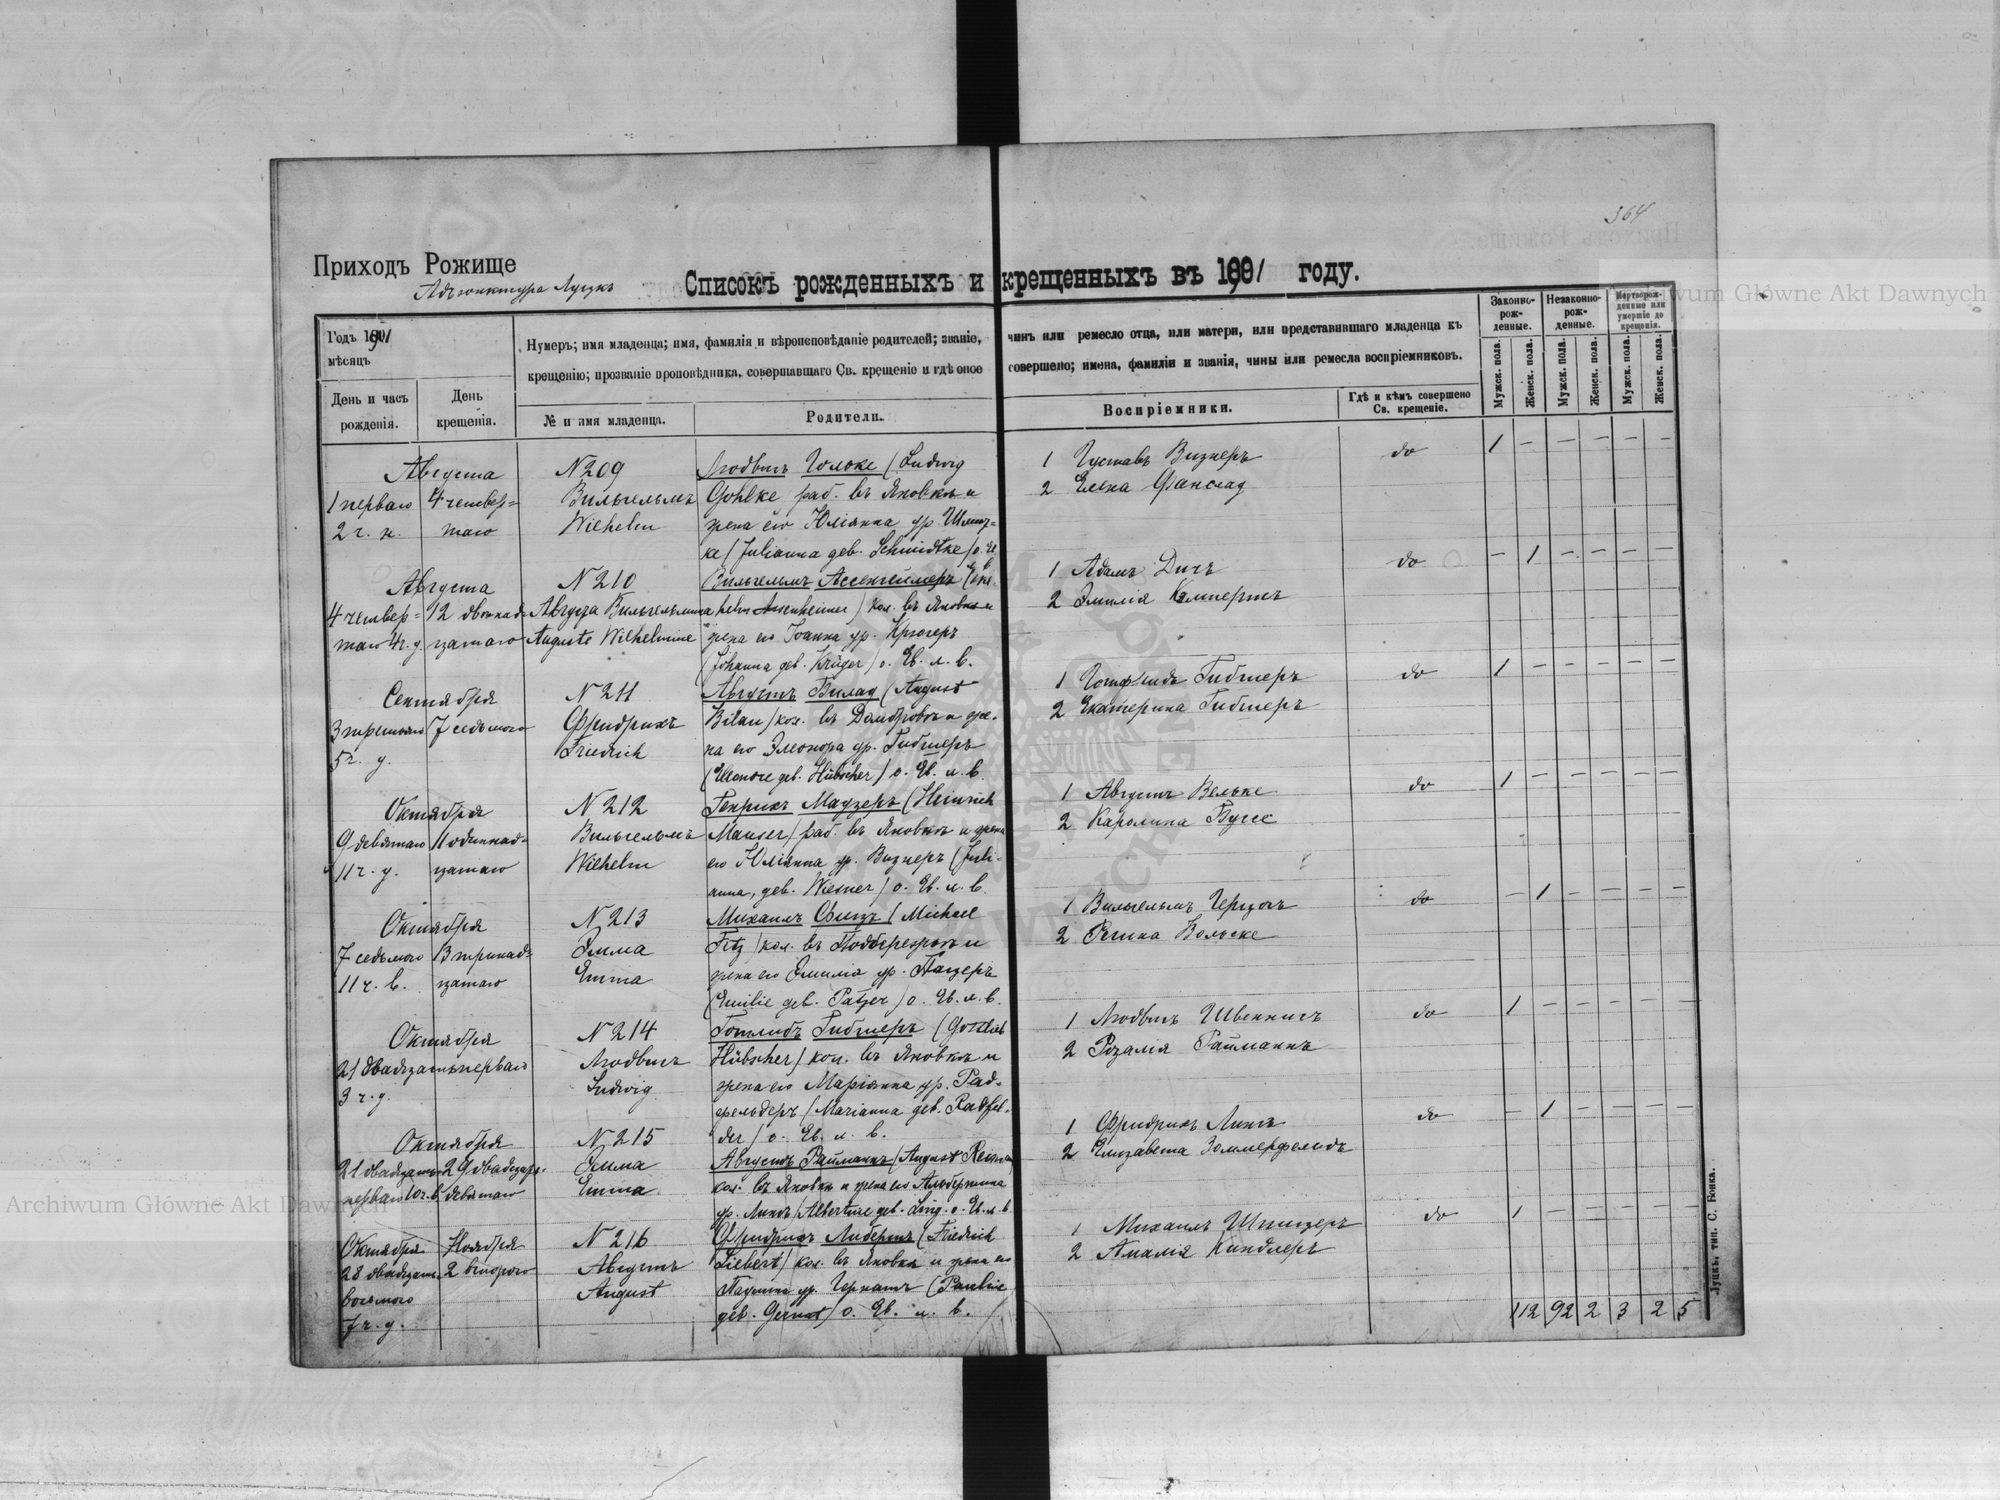 364
Приходъ Рожище
Адъюнктура Луцкъ
Списокъ рожденныхъ и крещенныхъ въ 1891 году.
Годъ 1891
мѣсяцъ
День и часъ рожденія.
День крещенія.
Нумеръ; имя младенца; имя, фамилія и вѣроисповѣданіе родителей; званіе, чинъ или ремесло отца, или матери, или представившаго младенца къ
крещенію; прозваніе проповѣдника, совершавшаго Св. крещеніе и гдѣ оное совершено; имена, фамиліи и званія, чины или ремесла воспріемниковъ.
№ и имя младенца.
Родители.
Воспріемники.
Гдѣ и кѣмъ совершено Св. крещеніе.
Законно-рож-денные.
Незаконно-рож-денные.
Мертворож-денные или умершіе до крещенія.
Мужск. пола.
Женск. пола.
Мужск. пола.
Женск. пола.
Мужск. пола.
Женск. пола.
Августа
1 перваго
2 ч. н.
4 четвер=
таго
N 209
Вильгельмъ
Wilhelm
Людвигъ Гольке (Ludwig
Gohlke раб. въ Яновкѣ и
жена его Юліанна ур. Шмит=
ке (Julianna geb. Schmidtke) о. Ев.
1 Густавъ Визнеръ
2 Елена
do
1 – – – – –
Августа
4 четвер=
таго 4 ч. у.
12 двѣнад=
цатаго
N 210
Августа Вильгельмина
Auguste Wilhelmine
Вильгельмъ Ассенгеймеръ (Wil
helm Assenheimer) кол. въ Яновкѣ и
жена его Іоанна ур. Крюгеръ
(Johanna geb. Krüger) о. Ев. л. в.
1 Адамъ Дичъ
2 Эмилія Кэмпертъ
do
– 1 – – – –
Сентября
3 третьяго
5 ч. у.
7 седьмого
N 211
Фридрихъ
Friedrich
Августъ Билау (August
Bilau) кол. въ Домбровкѣ и же-
на его Элеонора ур. Гибшеръ
(Eleonore geb. Hübscher) о. Ев. л. в.
1 Готфлидъ Гибшеръ
2 Екатерина Гибшеръ
do
1 – – – – –
Октября
9 девятаго
11 ч. у.
11 одиннад=
цатаго
N 212
Вильгельмъ
Wilhelm
Генрихъ Маузеръ (Heinrich
Mauser) раб. въ Яновкѣ и жена
его Юліянна ур. Визнеръ (Juli-
anna, geb. Wiesner) о. Ев. л. в.
1 Августъ Вельке
2 Каролина Буссе
do
1 – – – – –
Октября
7 седьмого
11 ч. в.
13 тринад=
цатаго
N 213
Эмма
Emma
Михаилъ Фитцъ (Michael
Fitz) кол. въ Подберезьѣ и
жена его Эмилія ур. Пацеръ
(Emilie geb. Patzer) о. Ев. л. в.
1 Вильгельмъ Герцогъ
2 Регина Вольске
do
– 1 – – – –
Октября
21 двадцатьперваго
3 ч. у.
N 214
Людвигъ
Ludwig
Готлибъ Гибшеръ (Gottlieb
Hübscher) кол. въ Яновкѣ и
жена его Маріянна ур. Рад-
фельдеръ (Marianna geb. Radfel-
der) о. Ев. л. в.
1 Людвигъ Швеннигъ
2 Розалія Райманнъ
do
1 – – – – –
Октября
21 двадцать
перваго 10 ч. в.
29 двадцать
девятаго
N 215
Эмма
Emma
Августъ Райманнъ (August
кол. въ Яновкѣ и жена его Альбертина
ур. Линкъ (Albertine geb. Ling. о. Ев. л. в.
1 Фридрихъ Линкъ
2 Елизавета Зоммерфельдъ
do
– 1 – – – –
Октября
28 двадцать
восьмого
7 ч. у.
Ноября
2 второго
N 216
Августъ
August
Фридрихъ Либертъ (Friedrich
Liebert) кол. въ Яновкѣ и жена его
Паулина ур. Гернатъ (Pauline
geb. Gernat) о. Ев. л. в.
1 Михаилъ Шпицеръ
2 Амалія Киндлеръ
do
1 – – – – –
112 92 2 3 2 5
Луцкъ, тип. С. Бонка.
Archiwum Główne Akt Dawnych
Archiwum Główne Akt Dawnych